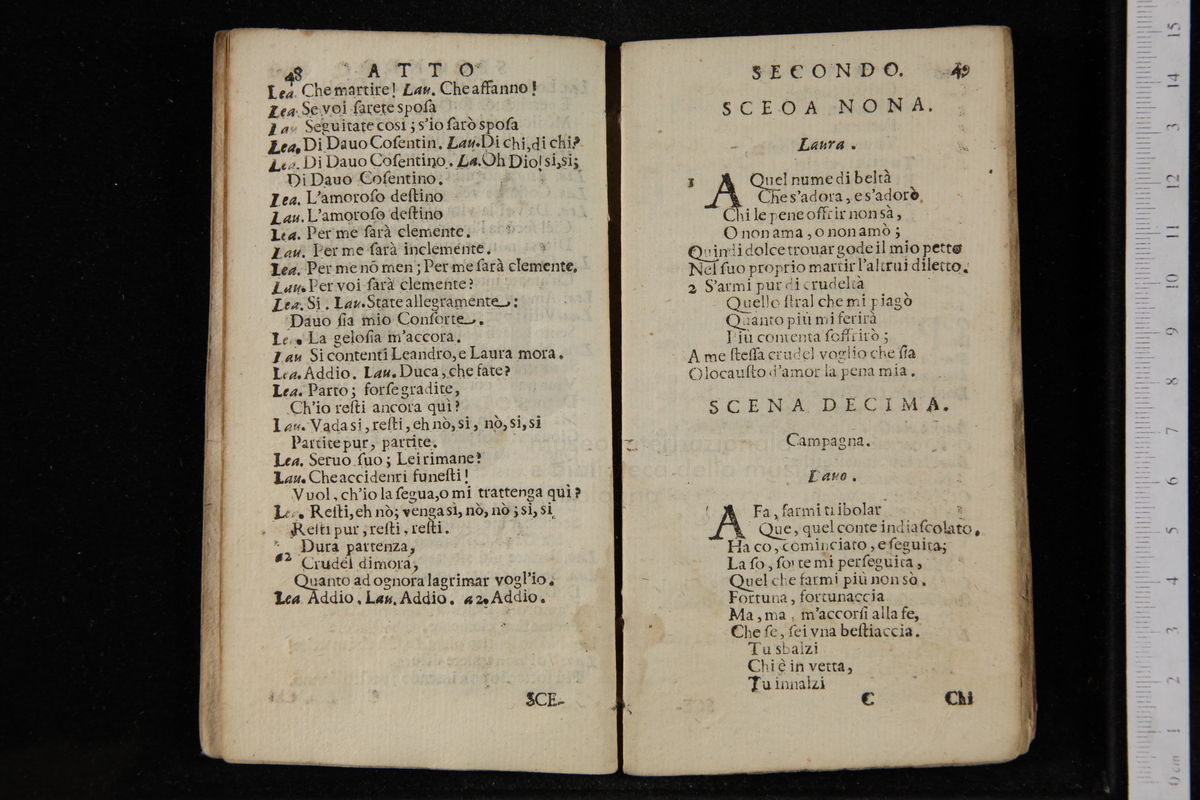 48 ATTO
Lea. Che martire! Lau. Che affanno!
Lea. Se voi sarete sposa
Lau Seguitate così; s'io sarò sposa
Lea. Di Dauo Cosentin. Lau. Di chi, di chi?
Lea. Di Dauo Cosentino. La. Oh Dio! si, si;
Di Dauo Cosentino.
Lea. L'amoroso destino
Lau. L'amoroso destino
Lea. Per me sarà clemente.
Lau. Per me sarà inclemente.
Lea. Per me nõ men; Per me sarà clemente.
Lau. Per voi sarà clemente?
Lea. Si. Lau. State allegramente:
Dauo sia mio Consorte.
Lea. La gelosia m'accora.
Lau Si contenti Leandro, e Laura mora.
Lea. Addio. Lau. Duca, che fate?
Lea. Parto; forse gradite,
Ch'io resti ancora quì?
Lau. Vada si, resti, eh nò, si, nò, si, si
Partite pur, partite.
Lea. Seruo suo; Lei rimane?
Lau. Che accidenri funesti!
Vuol, ch'io la segua, o mi trattenga quì?
Lea. Resti, eh nò; venga sì, nò, nò; si, si
Resti pur, resti, resti.
Dura partenza,
a2 Crudel dimora,
Quanto ad ognora lagrimar vogl'io.
Lea Addio. Lau. Addio. a 2. Addio.
SCE-
SECONDO. 49
SCEOA NONA.
Laura.
1 AQuel nume di beltà
Che s'adora, e s'adorò
Chi le pene offrir non sà,
O non ama, o non amò;
Quindi dolce trouar gode il mio petto
Nel suo proprio martir l'altrui diletto.
2 S'armi pur di crudeltà
Quello stral che mi piagò
Quanto più mi ferirà
Più contenta soffrirò;
A me stessa crudel voglio che sia
Olocausto d'amor la pena mia.
SCENA DECIMA.
Campagna.
Dauo.
AFa, farmi tribolar
Que, quel conte indiascolato.
Ha co, cominciato, e seguita;
La so, sorte mi perseguita,
Quel che farmi più non sò.
Fortuna, fortunaccia
Ma, ma, m'accorsi alla fe,
Che se, sei vna bestiaccia.
Tu sbalzi
Chi è in vetta,
Tu innalzi
C Chi
museo internazionale
e biblioteca della musica